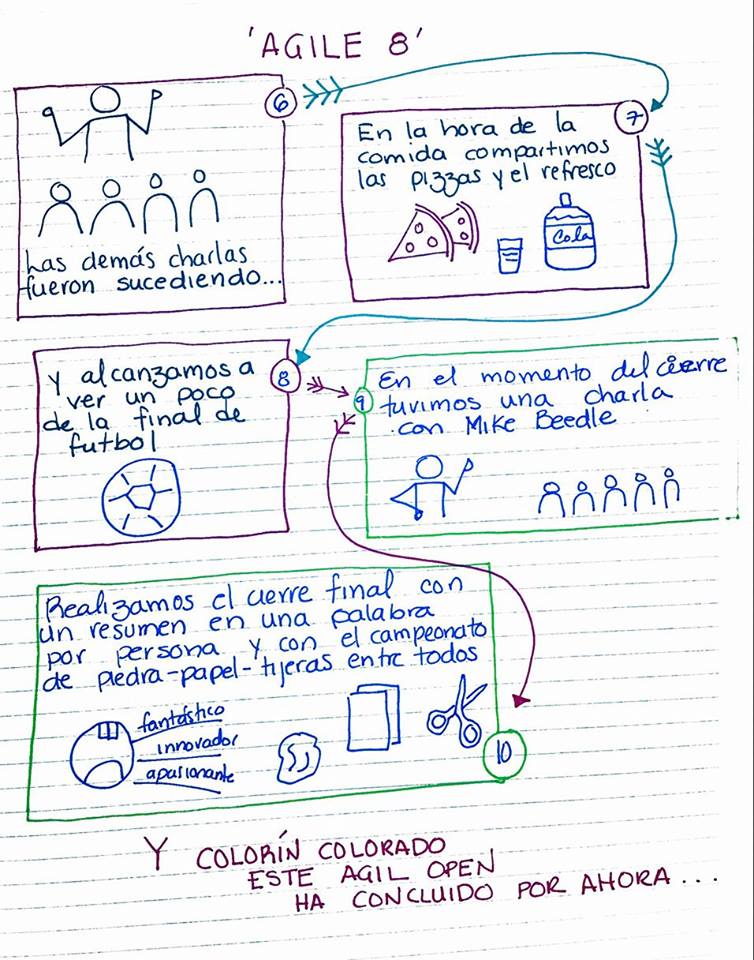 'AGILE 8'
6
Las demás charlas
fueron sucediendo...
7
En la hora de la
comida compartimos
las pizzas y el refresco
Cola
8
Y alcanzamos a
ver un poco
de la final de
futbol
9
En el momento del cierre
tuvimos una charla
con Mike Beedle
Realizamos el cierre final con
un resumen en una palabra
por persona y con el campeonato
de piedra-papel-tijeras entre todos
fantástico
innovador
apasionante
10
Y COLORÍN COLORADO
ESTE AGIL OPEN
HA CONCLUIDO POR AHORA...